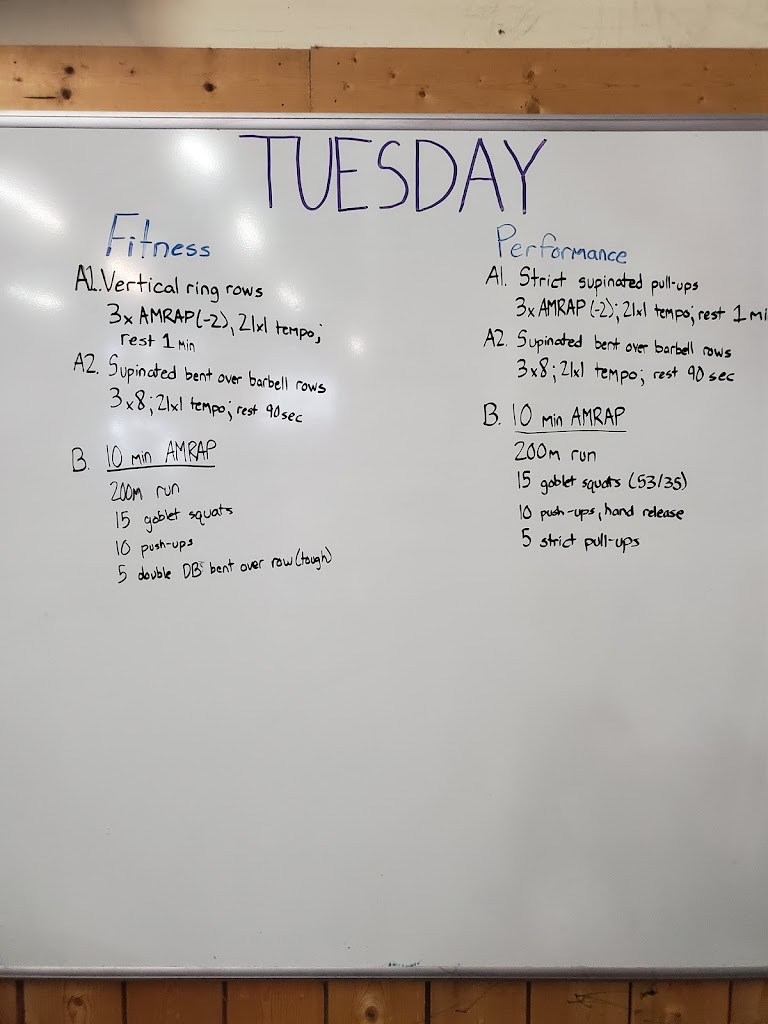 TUESDAY
Fitness
A1. Vertical ring rows
3x AMRAP (-2), 21x1 tempo;
rest 1 min
A2. Supinated bent over barbell rows
3x8; 21x1 tempo; rest 90 sec
B. 10 min AMRAP
200m run
15 goblet squats
10 push-ups
5 double DB bent over row (tough)
Performance
A1. Strict supinated pull-ups
3x AMRAP (-2); 21x1 tempo; rest 1 mi
A2. Supinated bent over barbell rows
3x8; 21x1 tempo; rest 90 sec
B. 10 min AMRAP
200m run
15 goblet squats (53/35)
10 push-ups, hand release
5 strict pull-ups